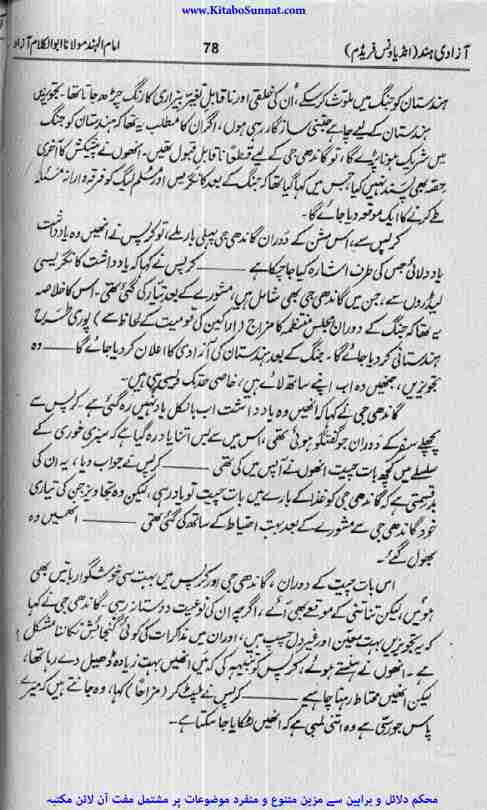 www.KitaboSunnat.com
آزادی ہند (انڈیا ونس فریڈم) 78 امام الہند مولانا ابوالکلام آزاد
ہندستان کو جنگ میں ملوث کر سکے، اُن کی خلقی اور ناقابلِ تغیّر بیزاری کا رنگ چڑھ جاتا تھا۔ تجویزیں
ہندستان کے لیے چاہے جتنی سازگار رہی ہوں، اگر ان کا مطلب یہ تھا کہ ہندستان کو جنگ
میں شریک ہونا پڑے گا، تو گاندھی جی کے لیے قطعاً ناقابلِ قبول تھیں۔ انھوں نے پیشکش کا آخری
حصّہ بھی پسند نہیں کیا، جس میں کہا گیا تھا کہ جنگ کے بعد کانگریس اور مُسلم لیگ کو فرقہ وارانہ مسئلہ
طے کرنے کا ایک موقعہ دیا جائے گا۔
کرپس سے، اس مشن کے دوران گاندھی جی پہلی بار ملے، تو کرپس نے انھیں وہ یادداشت
یاد دلائی جس کی طرف اشارہ کیا جا چکا ہے ــــــ کرپس نے کہا کہ یادداشت کانگریسی
لیڈروں سے، جن میں گاندھی جی بھی شامل ہیں، مشورے کے بعد تیار کی گئی تھی۔ اس کا خلاصہ
یہ تھا کہ جنگ کے دوران مجلسِ منتظمہ کا مزاج (اراکین کی قومیت کے لحاظ سے) پوری طرح
ہندستانی کر دیا جائے گا۔ جنگ کے بعد ہندستان کی آزادی کا اعلان کر دیا جائے گا ــــــ وہ
تجویزیں، جنھیں وہ اب اپنے ساتھ لائے ہیں، خاصی حد تک ویسی ہی ہیں۔
گاندھی جی نے کہا کہ انھیں وہ یادداشت اب بالکل یاد نہیں رہ گئی ہے۔ کرپس سے
پچھلے سفر کے دوران جو گفتگو ہوئی تھی، اس میں سے بس اتنا یاد رہ گیا ہے کہ سبزی خوری کے
سلسلے میں کچھ بات چیت انھوں نے آپس میں کی تھی ــــــ کرپس نے جواب دیا، یہ ان کی
بدقسمتی ہے کہ گاندھی جی کو غذا کے بارے میں بات چیت تو یاد رہی، لیکن وہ تجاویز جن کی تیاری
خود گاندھی جی سے مشورے کے بعد بہت احتیاط کے ساتھ کی گئی تھی ــــــ انھیں وہ
بھول گئے۔
اس بات چیت کے دوران، گاندھی جی اور کرپس میں بہت سی خوشگوار باتیں بھی
ہوئیں، لیکن تناتنی کے موقع بھی آئے، اگرچہ ان کی نوعیت دوستانہ رہی۔ گاندھی جی نے کہا
کہ یہ تجویزیں بہت معیّن اور غیر دل چسپ ہیں، اور ان میں مذاکرات کی کوئی گنجائش نکالنا مشکل
ہے۔ انھوں نے ہنستے ہوئے، کرپس کو تنبیہہ کی کہ میں انھیں بہت زیادہ ڈھیل دے رہا تھا،
لیکن انھیں محتاط رہنا چاہیے ــــــ کرپس نے پلٹ کر (مزاحاً) کہا، وہ جانتے ہیں کہ میرے
پاس جو رسّی ہے وہ اتنی لمبی ہے کہ انھیں لٹکایا جا سکتا ہے۔
محکم دلائل و براہین سے مزین متنوع و منفرد موضوعات پر مشتمل مفت آن لائن مکتبہ